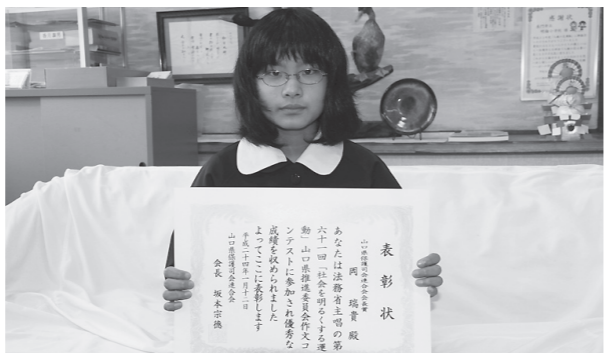 表彰状
山口県保護司会連合会会長賞
岡 瑞貴 殿
あなたは法務省主唱の第
六十一回「社会を明るくする運
動」山口県推進委員会作文コ
ンテストに参加され優秀な
成績を収められました
よってここに表彰します
平成二十四年一月十二日
山口県保護司会連合会
会長 坂本宗徳
感謝状